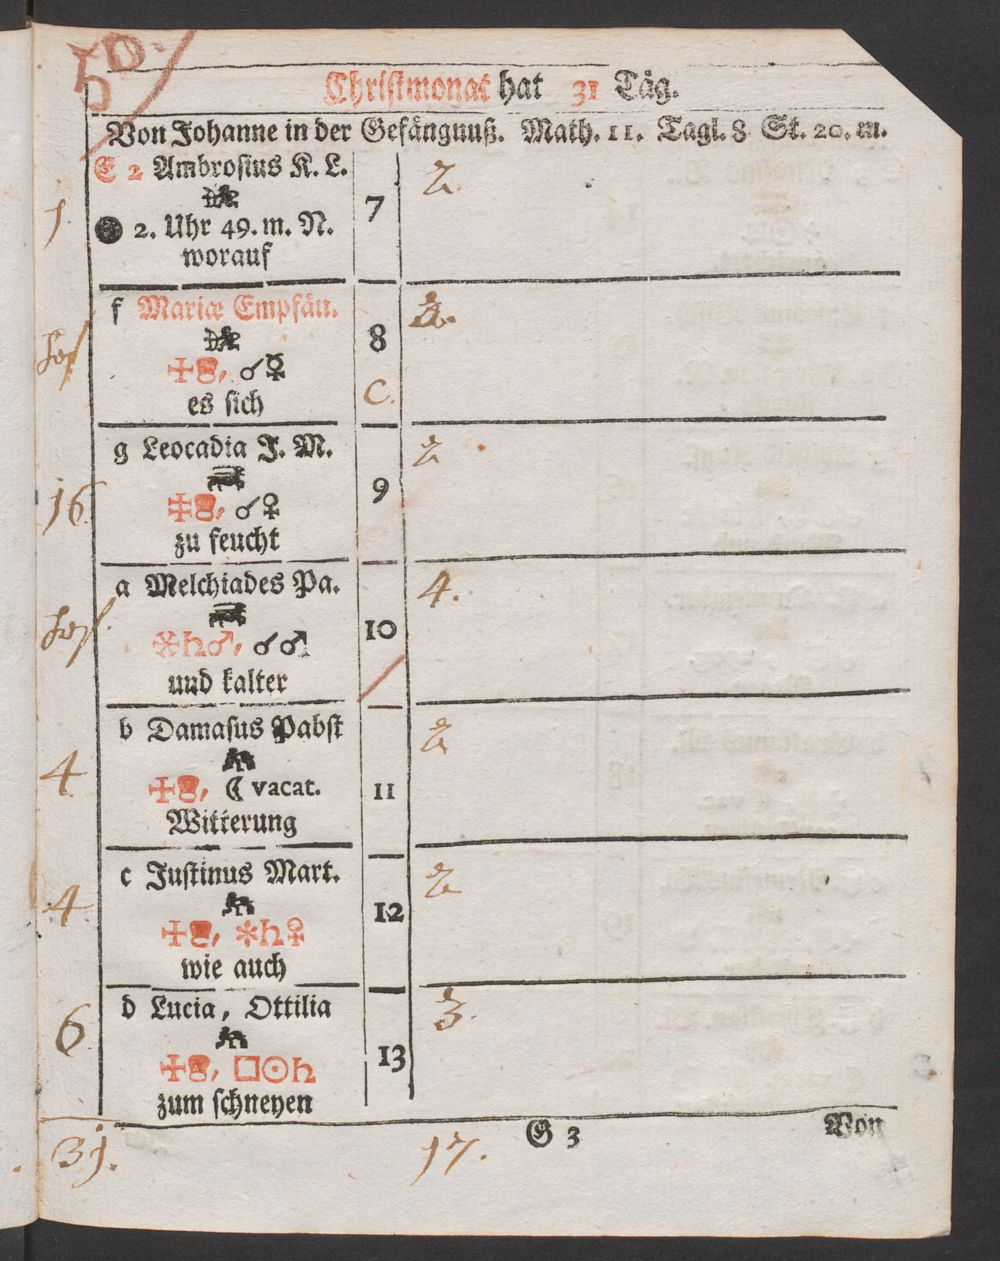 50.
Christmonat hat 31 Täg.
Von Johanne in der Gefängnuß. Math. 11. Tagl. 8 St. 20. m.
E 2 Ambrosius K. L.
1.
7
2.
2. Uhr 49. m. N.
worauf
f Mariæ Empfän.
8
2.
♄, ☌☿
C.
es sich
g Leocadia J. M.
16.
9
2
☌♀
zu feucht
a Melchiades Pa.
10
4.
♄♂, ☌♂
und kalter
b Damasus Pabst
4.
11
2
☾ vacat.
Witterung
c Justinus Mart.
4.
12
2.
⚹♄♀
wie auch
d Lucia, Ottilia
6.
13
3.
□☉♄
zum schneyen
G 3
Von
31.
17.